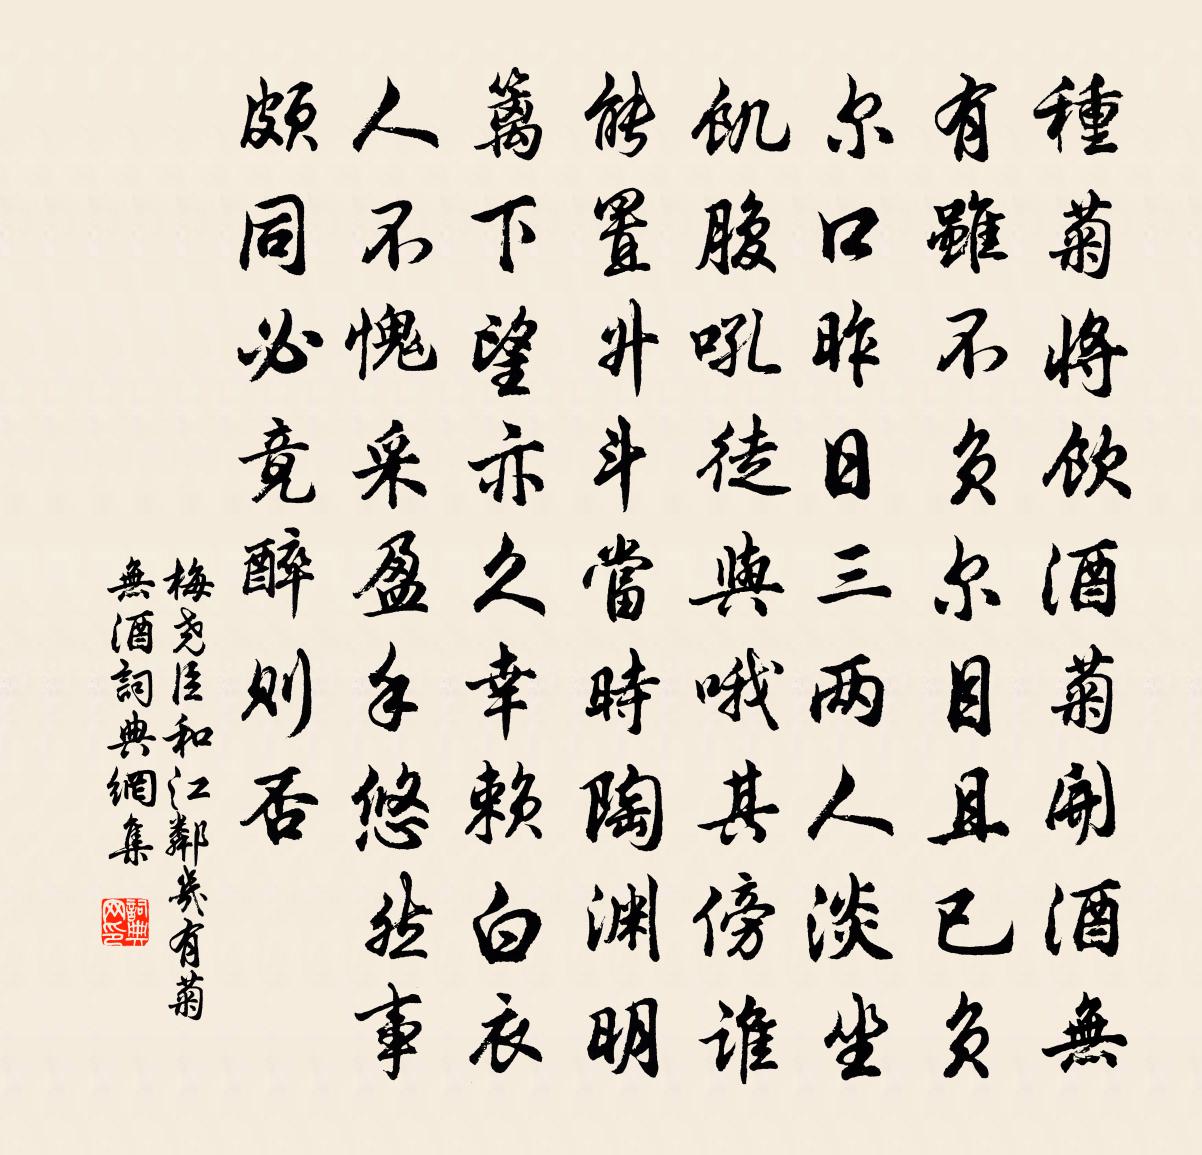 種菊將飲酒菊開酒無
有雖不負尔目且已負
尔口昨日三两人淡坐
飢腹吼徒與哦其傍誰
能置升斗當時陶渊明
籬下望亦久幸赖白衣
人不愧采盈手悠然事
頗同必竟醉則否
梅尧臣和江鄰幾有菊
無酒詞典網集
詞典
网印